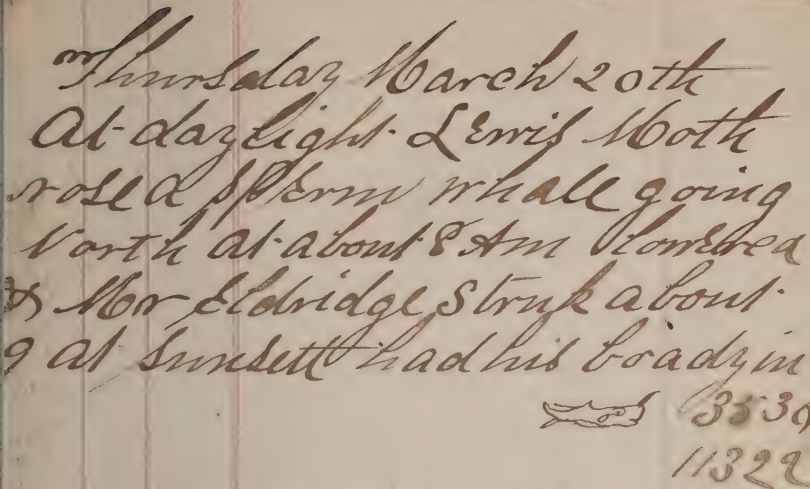 Thursday March 20th
At daylight Lewis Moth
rosed a Sperm whale going
North at about 8 Am lowered
& Mr Eldridge Struk about
9 at Sunsett had his boady in
35 30
113 22